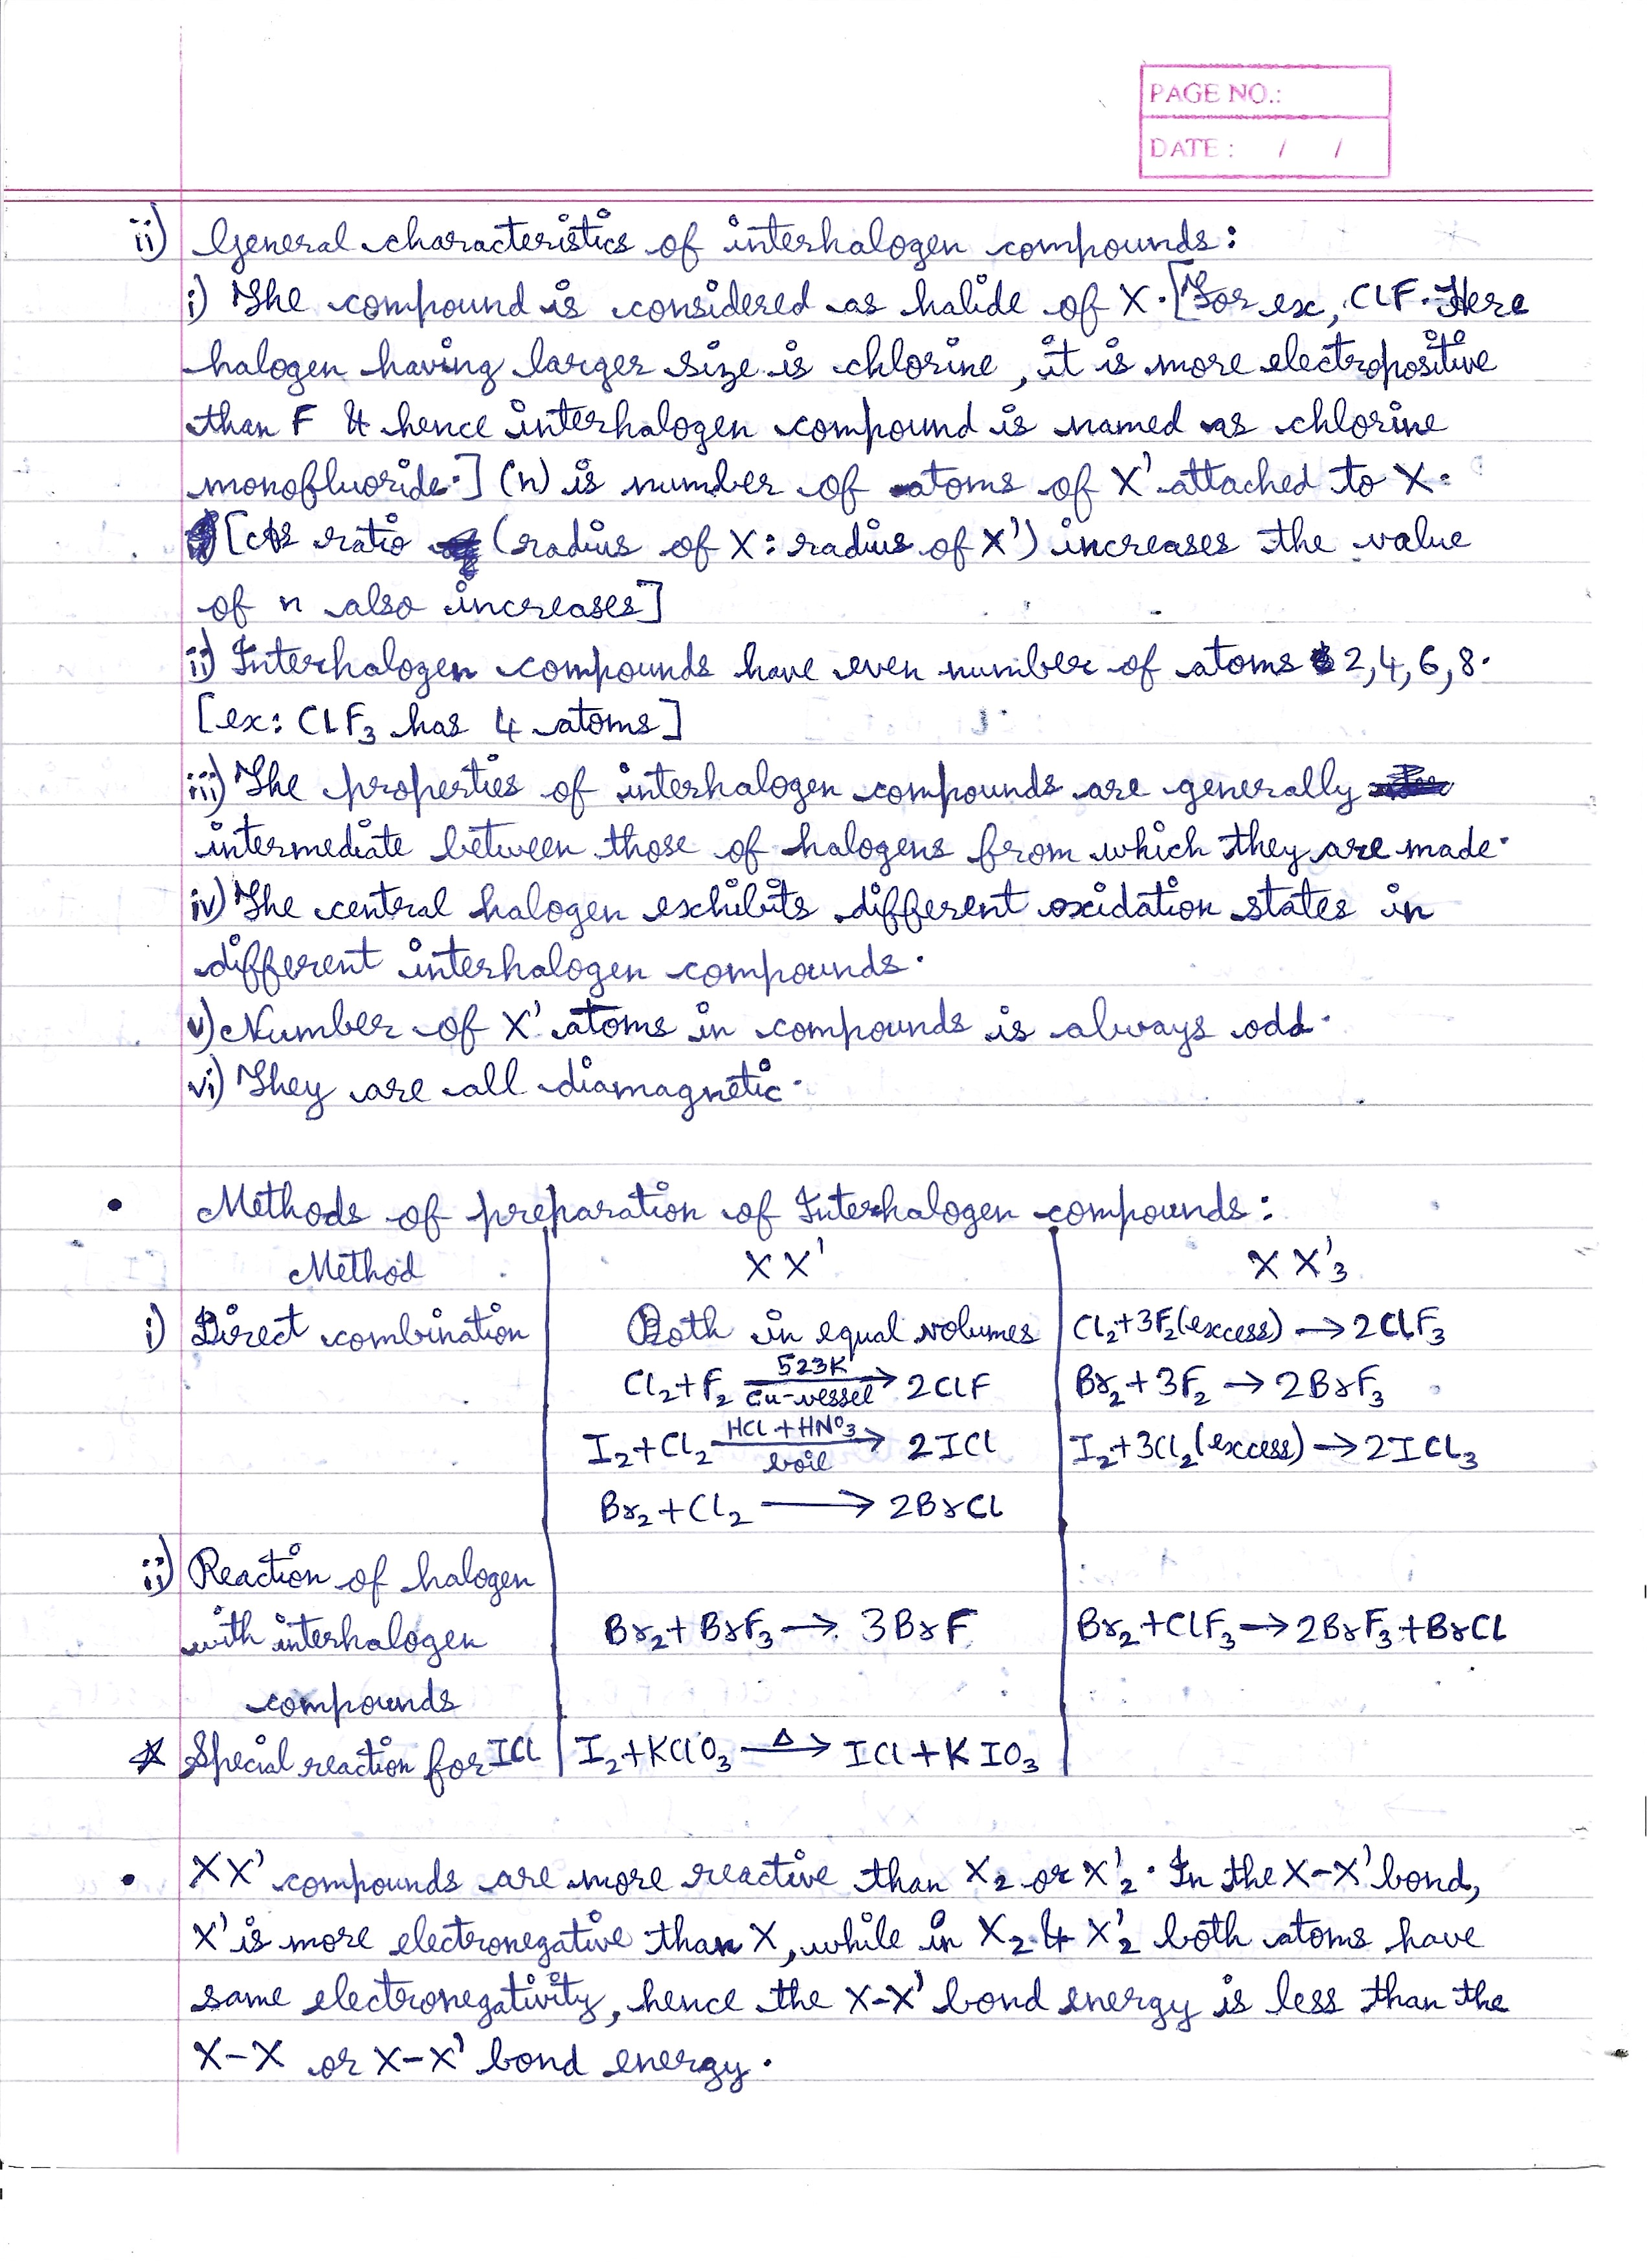 PAGE NO.:
DATE : / /
ii) General characteristics of interhalogen compounds:
i) The compound is considered as halide of X. [For ex, ClF. Here
halogen having larger size is chlorine, it is more electropositive
than F & hence interhalogen compound is named as chlorine
monofluoride.] (n) is number of atoms of X' attached to X.
[As ratio (radius of X : radius of X') increases the value
of n also increases]
ii) Interhalogen compounds have even number of atoms 2,4,6,8.
[ex: ClF₃ has 4 atoms]
iii) The properties of interhalogen compounds are generally
intermediate between those of halogens from which they are made.
iv) The central halogen exhibits different oxidation states in
different interhalogen compounds.
v) Number of X' atoms in compounds is always odd.
vi) They are all diamagnetic.
• Methods of preparation of Interhalogen compounds:
Method XX' XX'₃
i) Direct combination Both in equal volumes Cl₂+3F₂(excess) → 2ClF₃
523K
Cl₂+F₂ → 2ClF Br₂+3F₂ → 2BrF₃
Cu-vessel
HCl+HNO₃
I₂+Cl₂ → 2ICl I₂+3Cl₂(excess) → 2ICl₃
boil
Br₂+Cl₂ → 2BrCl
ii) Reaction of halogen
with interhalogen Br₂+BrF₃ → 3BrF Br₂+ClF₃ → 2BrF₃+BrCl
compounds
* Special reaction for ICl I₂+KClO₃ —Δ→ ICl+KIO₃
• XX' compounds are more reactive than X₂ or X'₂. In the X-X' bond,
X' is more electronegative than X, while in X₂ & X'₂ both atoms have
same electronegativity, hence the X-X' bond energy is less than the
X-X or X-X' bond energy.